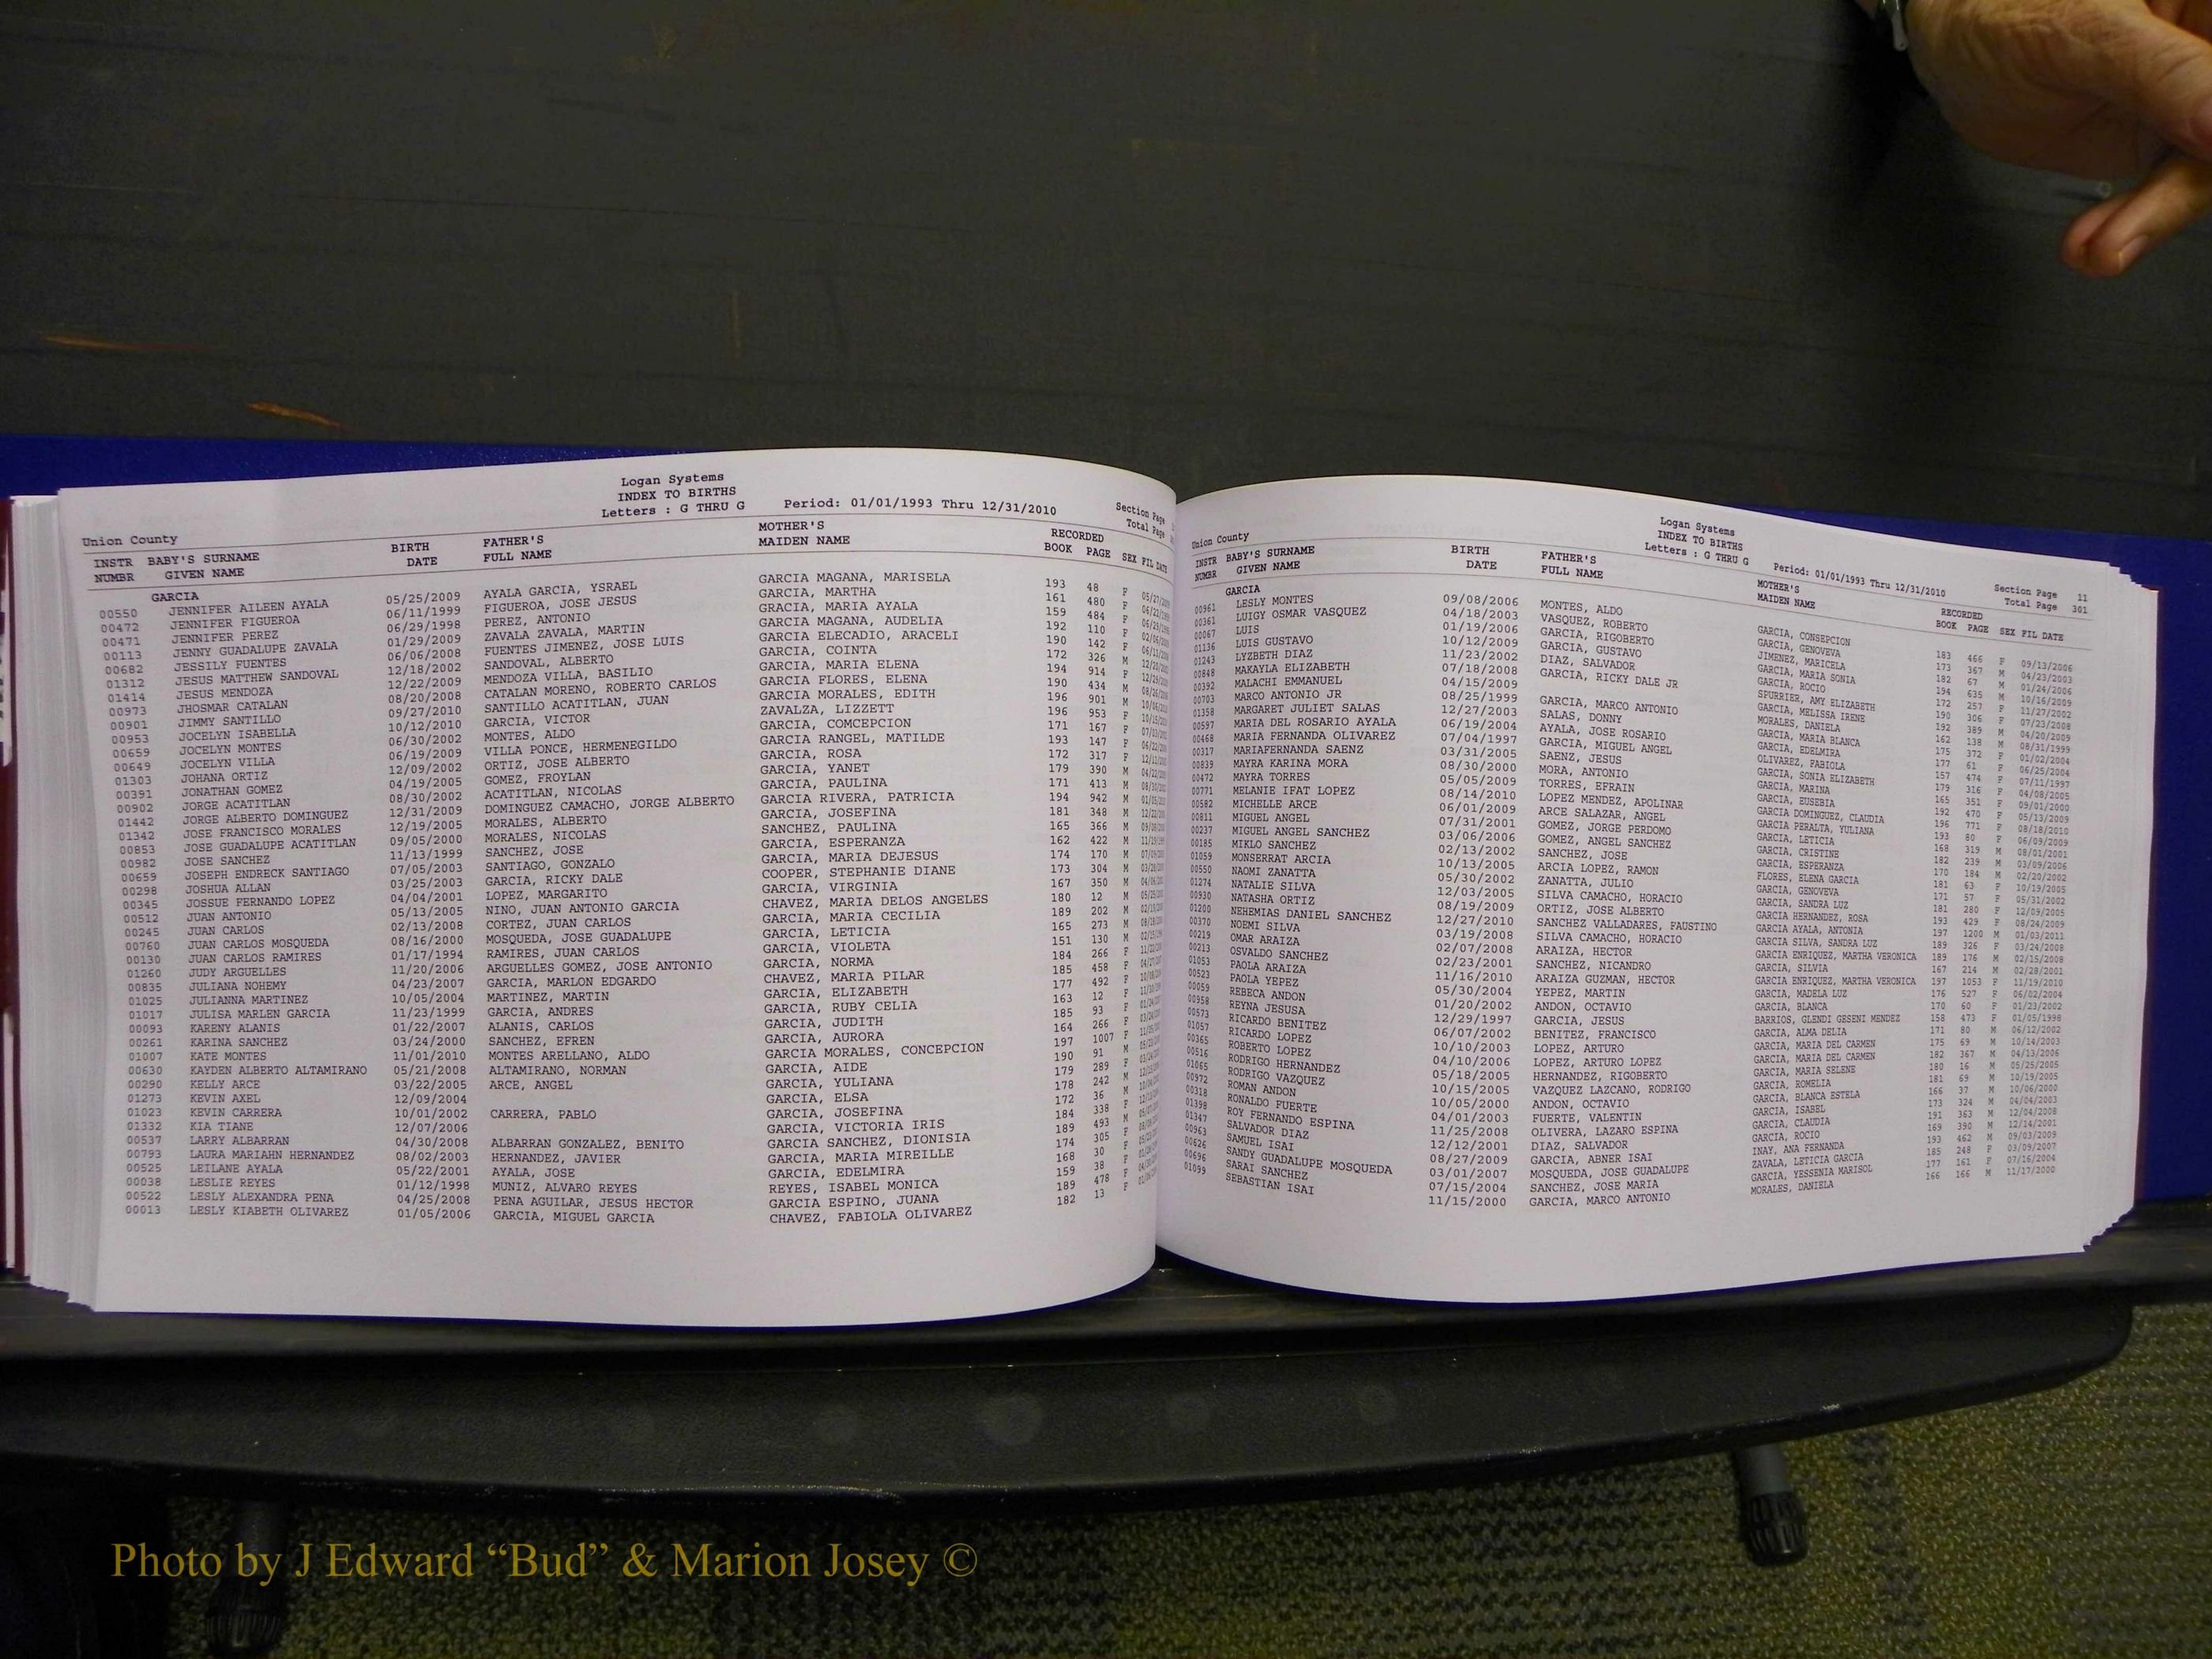 Logan Systems
INDEX TO BIRTHS
Letters : G THRU G Period: 01/01/1993 Thru 12/31/2010 Section Page
Union County Total Page
INSTR BABY'S SURNAME BIRTH FATHER'S MOTHER'S RECORDED
NUMBR GIVEN NAME DATE FULL NAME MAIDEN NAME BOOK PAGE SEX FIL DATE
GARCIA
00550 JENNIFER AILEEN AYALA 05/25/2009 AYALA GARCIA, YSRAEL GARCIA MAGANA, MARISELA 193 48 F
00472 JENNIFER FIGUEROA 06/11/1999 FIGUEROA, JOSE JESUS GARCIA, MARTHA 161 480 F
00471 JENNIFER PEREZ 06/29/1998 PEREZ, ANTONIO GRACIA, MARIA AYALA 159 484 F
00113 JENNY GUADALUPE ZAVALA 01/29/2009 ZAVALA ZAVALA, MARTIN GARCIA MAGANA, AUDELIA 192 110 F
00682 JESSILY FUENTES 06/06/2008 FUENTES JIMENEZ, JOSE LUIS GARCIA ELECADIO, ARACELI 190 142 F
01312 JESUS MATTHEW SANDOVAL 12/18/2002 SANDOVAL, ALBERTO GARCIA, COINTA 172 326 M
01414 JESUS MENDOZA 12/22/2009 MENDOZA VILLA, BASILIO GARCIA, MARIA ELENA 194 914
00973 JHOSMAR CATALAN 08/20/2008 CATALAN MORENO, ROBERTO CARLOS GARCIA FLORES, ELENA 190 434 M
00901 JIMMY SANTILLO 09/27/2010 SANTILLO ACATITLAN, JUAN GARCIA MORALES, EDITH 196 901 M
00953 JOCELYN ISABELLA 10/12/2010 GARCIA, VICTOR ZAVALZA, LIZZETT 196 953 F
00659 JOCELYN MONTES 06/30/2002 MONTES, ALDO GARCIA, COMCEPCION 171 167 F
00649 JOCELYN VILLA 06/19/2009 VILLA PONCE, HERMENEGILDO GARCIA RANGEL, MATILDE 193 147 F
01303 JOHANA ORTIZ 12/09/2002 ORTIZ, JOSE ALBERTO GARCIA, ROSA 172 317 F
00391 JONATHAN GOMEZ 04/19/2005 GOMEZ, FROYLAN GARCIA, YANET 179 390 M
00902 JORGE ACATITLAN 08/30/2002 ACATITLAN, NICOLAS GARCIA, PAULINA 171 413 M
01442 JORGE ALBERTO DOMINGUEZ 12/31/2009 DOMINGUEZ CAMACHO, JORGE ALBERTO GARCIA RIVERA, PATRICIA 194 942 M
01342 JOSE FRANCISCO MORALES 12/19/2005 MORALES, ALBERTO GARCIA, JOSEFINA 181 348 M
00853 JOSE GUADALUPE ACATITLAN 09/05/2000 MORALES, NICOLAS SANCHEZ, PAULINA 165 366 M
00982 JOSE SANCHEZ 11/13/1999 SANCHEZ, JOSE GARCIA, ESPERANZA 162 422 M
00659 JOSEPH ENDRECK SANTIAGO 07/05/2003 SANTIAGO, GONZALO GARCIA, MARIA DEJESUS 174 170 M
00298 JOSHUA ALLAN 03/25/2003 GARCIA, RICKY DALE COOPER, STEPHANIE DIANE 173 304 M
00345 JOSSUE FERNANDO LOPEZ 04/04/2001 LOPEZ, MARGARITO GARCIA, VIRGINIA 167 350 M
00512 JUAN ANTONIO 05/13/2005 NINO, JUAN ANTONIO GARCIA CHAVEZ, MARIA DELOS ANGELES 180 12 M
00245 JUAN CARLOS 02/13/2008 CORTEZ, JUAN CARLOS GARCIA, MARIA CECILIA 189 202 M
00760 JUAN CARLOS MOSQUEDA 08/16/2000 MOSQUEDA, JOSE GUADALUPE GARCIA, LETICIA 165 273 M
00130 JUAN CARLOS RAMIRES 01/17/1994 RAMIRES, JUAN CARLOS GARCIA, VIOLETA 151 130 M
01260 JUDY ARGUELLES 11/20/2006 ARGUELLES GOMEZ, JOSE ANTONIO GARCIA, NORMA 184 266 F
00835 JULIANA NOHEMY 04/23/2007 GARCIA, MARLON EDGARDO CHAVEZ, MARIA PILAR 185 458 F
01025 JULIANNA MARTINEZ 10/05/2004 MARTINEZ, MARTIN GARCIA, ELIZABETH 177 492 F
01017 JULISA MARLEN GARCIA 11/23/1999 GARCIA, ANDRES GARCIA, RUBY CELIA 163 12 F
00093 KARENY ALANIS 01/22/2007 ALANIS, CARLOS GARCIA, JUDITH 185 93 F
00261 KARINA SANCHEZ 03/24/2000 SANCHEZ, EFREN GARCIA, AURORA 164 266 F
01007 KATE MONTES 11/01/2010 MONTES ARELLANO, ALDO GARCIA MORALES, CONCEPCION 197 1007 F
00630 KAYDEN ALBERTO ALTAMIRANO 05/21/2008 ALTAMIRANO, NORMAN GARCIA, AIDE 190 91 M
00290 KELLY ARCE 03/22/2005 ARCE, ANGEL GARCIA, YULIANA 179 289 F
01273 KEVIN AXEL 12/09/2004 GARCIA, ELSA 178 242 M
01023 KEVIN CARRERA 10/01/2002 CARRERA, PABLO GARCIA, JOSEFINA 172 36 M
01332 KIA TIANE 12/07/2006 GARCIA, VICTORIA IRIS 184 338 F
00537 LARRY ALBARRAN 04/30/2008 ALBARRAN GONZALEZ, BENITO GARCIA SANCHEZ, DIONISIA 189 493 M
00793 LAURA MARIAHN HERNANDEZ 08/02/2003 HERNANDEZ, JAVIER GARCIA, MARIA MIREILLE 174 305 F
00525 LEILANE AYALA 05/22/2001 AYALA, JOSE GARCIA, EDELMIRA 168 30 F
00038 LESLIE REYES 01/12/1998 MUNIZ, ALVARO REYES REYES, ISABEL MONICA 159 38 F
00522 LESLY ALEXANDRA PENA 04/25/2008 PENA AGUILAR, JESUS HECTOR GARCIA ESPINO, JUANA 189 478 F
00013 LESLY KIABETH OLIVAREZ 01/05/2006 GARCIA, MIGUEL GARCIA CHAVEZ, FABIOLA OLIVAREZ 182 13 F
Logan Systems
INDEX TO BIRTHS
Letters : G THRU G Period: 01/01/1993 Thru 12/31/2010 Section Page 11
Union County Total Page 301
INSTR BABY'S SURNAME BIRTH FATHER'S MOTHER'S RECORDED
NUMBR GIVEN NAME DATE FULL NAME MAIDEN NAME BOOK PAGE SEX FIL DATE
GARCIA
00961 LESLY MONTES 09/08/2006 MONTES, ALDO GARCIA, CONSEPCION 183 466 F 09/13/2006
00361 LUIGY OSMAR VASQUEZ 04/18/2003 VASQUEZ, ROBERTO GARCIA, GENOVEVA 173 367 M 04/23/2003
00067 LUIS 01/19/2006 GARCIA, RIGOBERTO JIMENEZ, MARICELA 182 67 M 01/24/2006
01136 LUIS GUSTAVO 10/12/2009 GARCIA, GUSTAVO GARCIA, MARIA SONIA 194 635 M 10/16/2009
01243 LYZBETH DIAZ 11/23/2002 DIAZ, SALVADOR GARCIA, ROCIO 172 257 F 11/27/2002
00848 MAKAYLA ELIZABETH 07/18/2008 GARCIA, RICKY DALE JR SPURRIER, AMY ELIZABETH 190 306 F 07/23/2008
00392 MALACHI EMMANUEL 04/15/2009 GARCIA, MELISSA IRENE 192 389 M 04/20/2009
00703 MARCO ANTONIO JR 08/25/1999 GARCIA, MARCO ANTONIO MORALES, DANIELA 162 138 M 08/31/1999
01358 MARGARET JULIET SALAS 12/27/2003 SALAS, DONNY GARCIA, MARIA BLANCA 175 372 F 01/02/2004
00597 MARIA DEL ROSARIO AYALA 06/19/2004 AYALA, JOSE ROSARIO GARCIA, EDELMIRA 177 61 F 06/25/2004
00468 MARIA FERNANDA OLIVAREZ 07/04/1997 GARCIA, MIGUEL ANGEL OLIVAREZ, FABIOLA 157 474 F 07/11/1997
00317 MARIAFERNANDA SAENZ 03/31/2005 SAENZ, JESUS GARCIA, SONIA ELIZABETH 179 316 F 04/08/2005
00839 MAYRA KARINA MORA 08/30/2000 MORA, ANTONIO GARCIA, MARINA 165 351 F 09/01/2000
00472 MAYRA TORRES 05/05/2009 TORRES, EFRAIN GARCIA, EUSEBIA 192 470 F 05/13/2009
00771 MELANIE IFAT LOPEZ 08/14/2010 LOPEZ MENDEZ, APOLINAR GARCIA DOMINGUEZ, CLAUDIA 196 771 F 08/18/2010
00582 MICHELLE ARCE 06/01/2009 ARCE SALAZAR, ANGEL GARCIA PERALTA, YULIANA 193 80 F 06/09/2009
00811 MIGUEL ANGEL 07/31/2001 GOMEZ, JORGE PERDOMO GARCIA, LETICIA 168 319 M 08/01/2001
00237 MIGUEL ANGEL SANCHEZ 03/06/2006 GOMEZ, ANGEL SANCHEZ GARCIA, CRISTINE 182 239 M 03/09/2006
00185 MIKLO SANCHEZ 02/13/2002 SANCHEZ, JOSE GARCIA, ESPERANZA 170 184 M 02/20/2002
01059 MONSERRAT ARCIA 10/13/2005 ARCIA LOPEZ, RAMON FLORES, ELENA GARCIA 181 63 F 10/19/2005
00550 NAOMI ZANATTA 05/30/2002 ZANATTA, JULIO GARCIA, GENOVEVA 171 57 F 05/31/2002
01274 NATALIE SILVA 12/03/2005 SILVA CAMACHO, HORACIO GARCIA, SANDRA LUZ 181 280 F 12/09/2005
00930 NATASHA ORTIZ 08/19/2009 ORTIZ, JOSE ALBERTO GARCIA HERNANDEZ, ROSA 193 429 F 08/24/2009
01200 NEHEMIAS DANIEL SANCHEZ 12/27/2010 SANCHEZ VALLADARES, FAUSTINO GARCIA AYALA, ANTONIA 197 1200 M 01/03/2011
00370 NOEMI SILVA 03/19/2008 SILVA CAMACHO, HORACIO GARCIA SILVA, SANDRA LUZ 189 326 F 03/24/2008
00219 OMAR ARAIZA 02/07/2008 ARAIZA, HECTOR GARCIA ENRIQUEZ, MARTHA VERONICA 189 176 M 02/15/2008
00213 OSVALDO SANCHEZ 02/23/2001 SANCHEZ, NICANDRO GARCIA, SILVIA 167 214 M 02/28/2001
01053 PAOLA ARAIZA 11/16/2010 ARAIZA GUZMAN, HECTOR GARCIA ENRIQUEZ, MARTHA VERONICA 197 1053 F 11/19/2010
00523 PAOLA YEPEZ 05/30/2004 YEPEZ, MARTIN GARCIA, MADELA LUZ 176 527 F 06/02/2004
00059 REBECA ANDON 01/20/2002 ANDON, OCTAVIO GARCIA, BLANCA 170 60 F 01/23/2002
00958 REYNA JESUSA 12/29/1997 GARCIA, JESUS BARRIOS, GLENDI GESENI MENDEZ 158 473 F 01/05/1998
00573 RICARDO BENITEZ 06/07/2002 BENITEZ, FRANCISCO GARCIA, ALMA DELIA 171 80 M 06/12/2002
01057 RICARDO LOPEZ 10/10/2003 LOPEZ, ARTURO GARCIA, MARIA DEL CARMEN 175 69 M 10/14/2003
00365 ROBERTO LOPEZ 04/10/2006 LOPEZ, ARTURO LOPEZ GARCIA, MARIA DEL CARMEN 182 367 M 04/13/2006
00516 RODRIGO HERNANDEZ 05/18/2005 HERNANDEZ, RIGOBERTO GARCIA, MARIA SELENE 180 16 M 05/25/2005
01065 RODRIGO VAZQUEZ 10/15/2005 VAZQUEZ LAZCANO, RODRIGO GARCIA, ROMELIA 181 69 M 10/19/2005
00972 ROMAN ANDON 10/05/2000 ANDON, OCTAVIO GARCIA, BLANCA ESTELA 166 37 M 10/06/2000
00318 RONALDO FUERTE 04/01/2003 FUERTE, VALENTIN GARCIA, ISABEL 173 324 M 04/04/2003
01398 ROY FERNANDO ESPINA 11/25/2008 OLIVERA, LAZARO ESPINA GARCIA, CLAUDIA 191 363 M 12/04/2008
01347 SALVADOR DIAZ 12/12/2001 DIAZ, SALVADOR GARCIA, ROCIO 169 390 M 12/14/2001
00963 SAMUEL ISAI 08/27/2009 GARCIA, ABNER ISAI INAY, ANA FERNANDA 193 462 M 09/03/2009
00626 SANDY GUADALUPE MOSQUEDA 03/01/2007 MOSQUEDA, JOSE GUADALUPE ZAVALA, LETICIA GARCIA 185 248 F 03/09/2007
00696 SARAI SANCHEZ 07/15/2004 SANCHEZ, JOSE MARIA GARCIA, YESSENIA MARISOL 177 161 F 07/16/2004
01099 SEBASTIAN ISAI 11/15/2000 GARCIA, MARCO ANTONIO MORALES, DANIELA 166 166 M 11/17/2000
Photo by J Edward “Bud” & Marion Josey ©